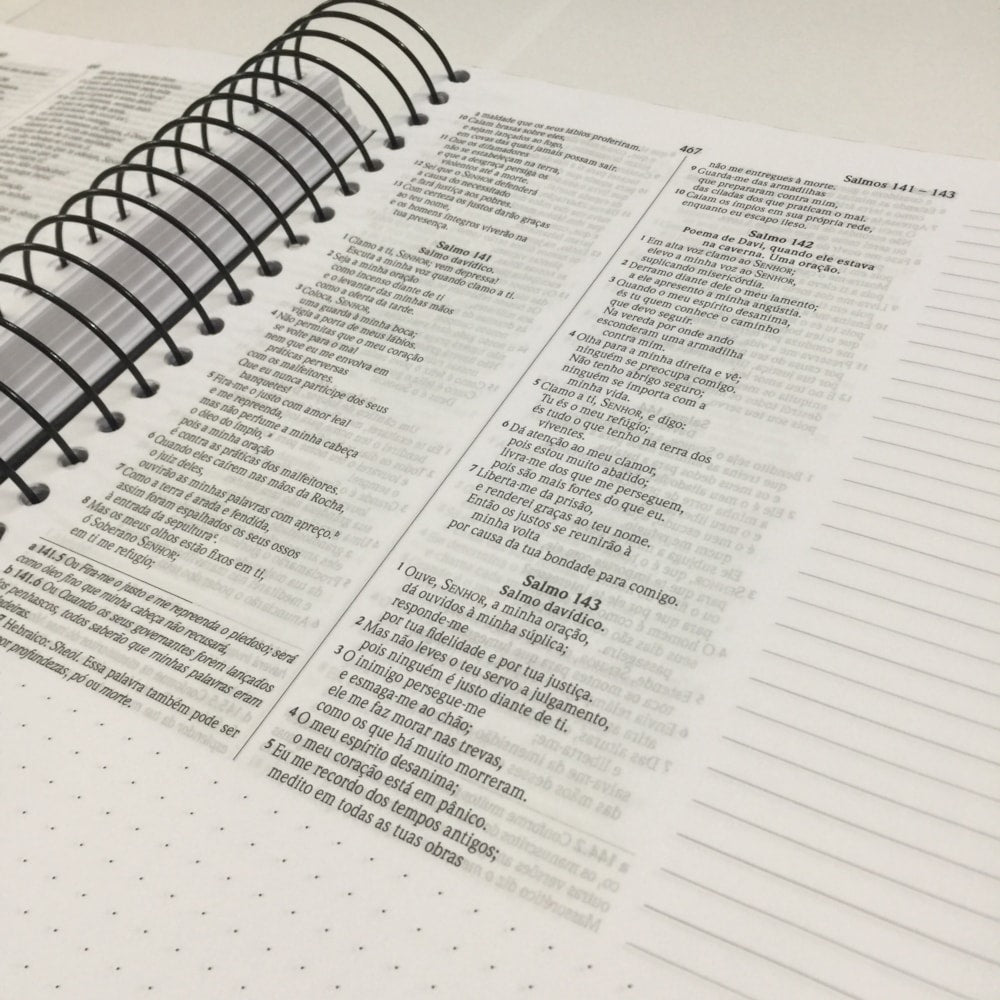 467
Salmos 141 – 143
a maldade que os seus lábios proferiram.
10 Caiam brasas sobre eles,
e sejam lançados ao fogo,
em covas das quais jamais possam sair.
11 Que os difamadores
não se estabeleçam na terra,
e que a desgraça persiga os
violentos até a morte.
12 Sei que o SENHOR defenderá
a causa do necessitado
e fará justiça aos pobres.
13 Com certeza os justos darão graças
ao teu nome,
e os homens íntegros viverão na
tua presença.
Salmo 141
Salmo davídico.
1 Clamo a ti, SENHOR; vem depressa!
Escuta a minha voz quando clamo a ti.
2 Seja a minha oração
como incenso diante de ti
e o levantar das minhas mãos
como a oferta da tarde.
3 Coloca, SENHOR,
uma guarda à minha boca;
vigia a porta de meus lábios.
4 Não permitas que o meu coração
se volte para o mal
nem que eu me envolva em
práticas perversas
com os malfeitores.
Que eu nunca participe dos seus
banquetes!
5 Fira-me o justo com amor leal
e me repreenda,
mas não perfume a minha cabeça
o óleo do ímpio, a
pois a minha oração
é contra as práticas dos malfeitores.
6 Quando eles caírem nas mãos da Rocha,
o juiz deles,
ouvirão as minhas palavras com apreço. b
7 Como a terra é arada e fendida,
assim foram espalhados os seus ossos
à entrada da sepultura c.
8 Mas os meus olhos estão fixos em ti,
ó Soberano SENHOR;
em ti me refugio;
a 141.5 Ou Fira-me o justo e me repreenda o piedoso; será
como óleo fino que minha cabeça não recusará,
b 141.6 Ou Quando os seus governantes forem lançados
dos penhascos, todos saberão que minhas palavras eram
Hebraico: Sheol. Essa palavra também pode ser
profundezas, pó ou morte.
não me entregues à morte.
9 Guarda-me das armadilhas
que prepararam contra mim,
das ciladas dos que praticam o mal.
10 Caiam os ímpios em sua própria rede,
enquanto eu escapo ileso.
Salmo 142
Poema de Davi, quando ele estava
na caverna. Uma oração.
1 Em alta voz clamo ao SENHOR;
elevo a minha voz ao SENHOR,
suplicando misericórdia.
2 Derramo diante dele o meu lamento;
a ele apresento a minha angústia.
3 Quando o meu espírito desanima,
és tu quem conhece o caminho
que devo seguir.
Na vereda por onde ando
esconderam uma armadilha
contra mim.
4 Olha para a minha direita e vê;
ninguém se preocupa comigo.
Não tenho abrigo seguro;
ninguém se importa com a
minha vida.
5 Clamo a ti, SENHOR, e digo:
Tu és o meu refúgio;
és tudo o que tenho na terra dos
viventes.
6 Dá atenção ao meu clamor,
pois estou muito abatido;
livra-me dos que me perseguem,
pois são mais fortes do que eu.
7 Liberta-me da prisão,
e renderei graças ao teu nome.
Então os justos se reunirão à
minha volta
por causa da tua bondade para comigo.
Salmo 143
Salmo davídico.
1 Ouve, SENHOR, a minha oração,
dá ouvidos à minha súplica;
responde-me
por tua fidelidade e por tua justiça.
2 Mas não leves o teu servo a julgamento,
pois ninguém é justo diante de ti.
3 O inimigo persegue-me
e esmaga-me ao chão;
ele me faz morar nas trevas,
como os que há muito morreram.
4 O meu espírito desanima;
o meu coração está em pânico.
5 Eu me recordo dos tempos antigos;
medito em todas as tuas obras